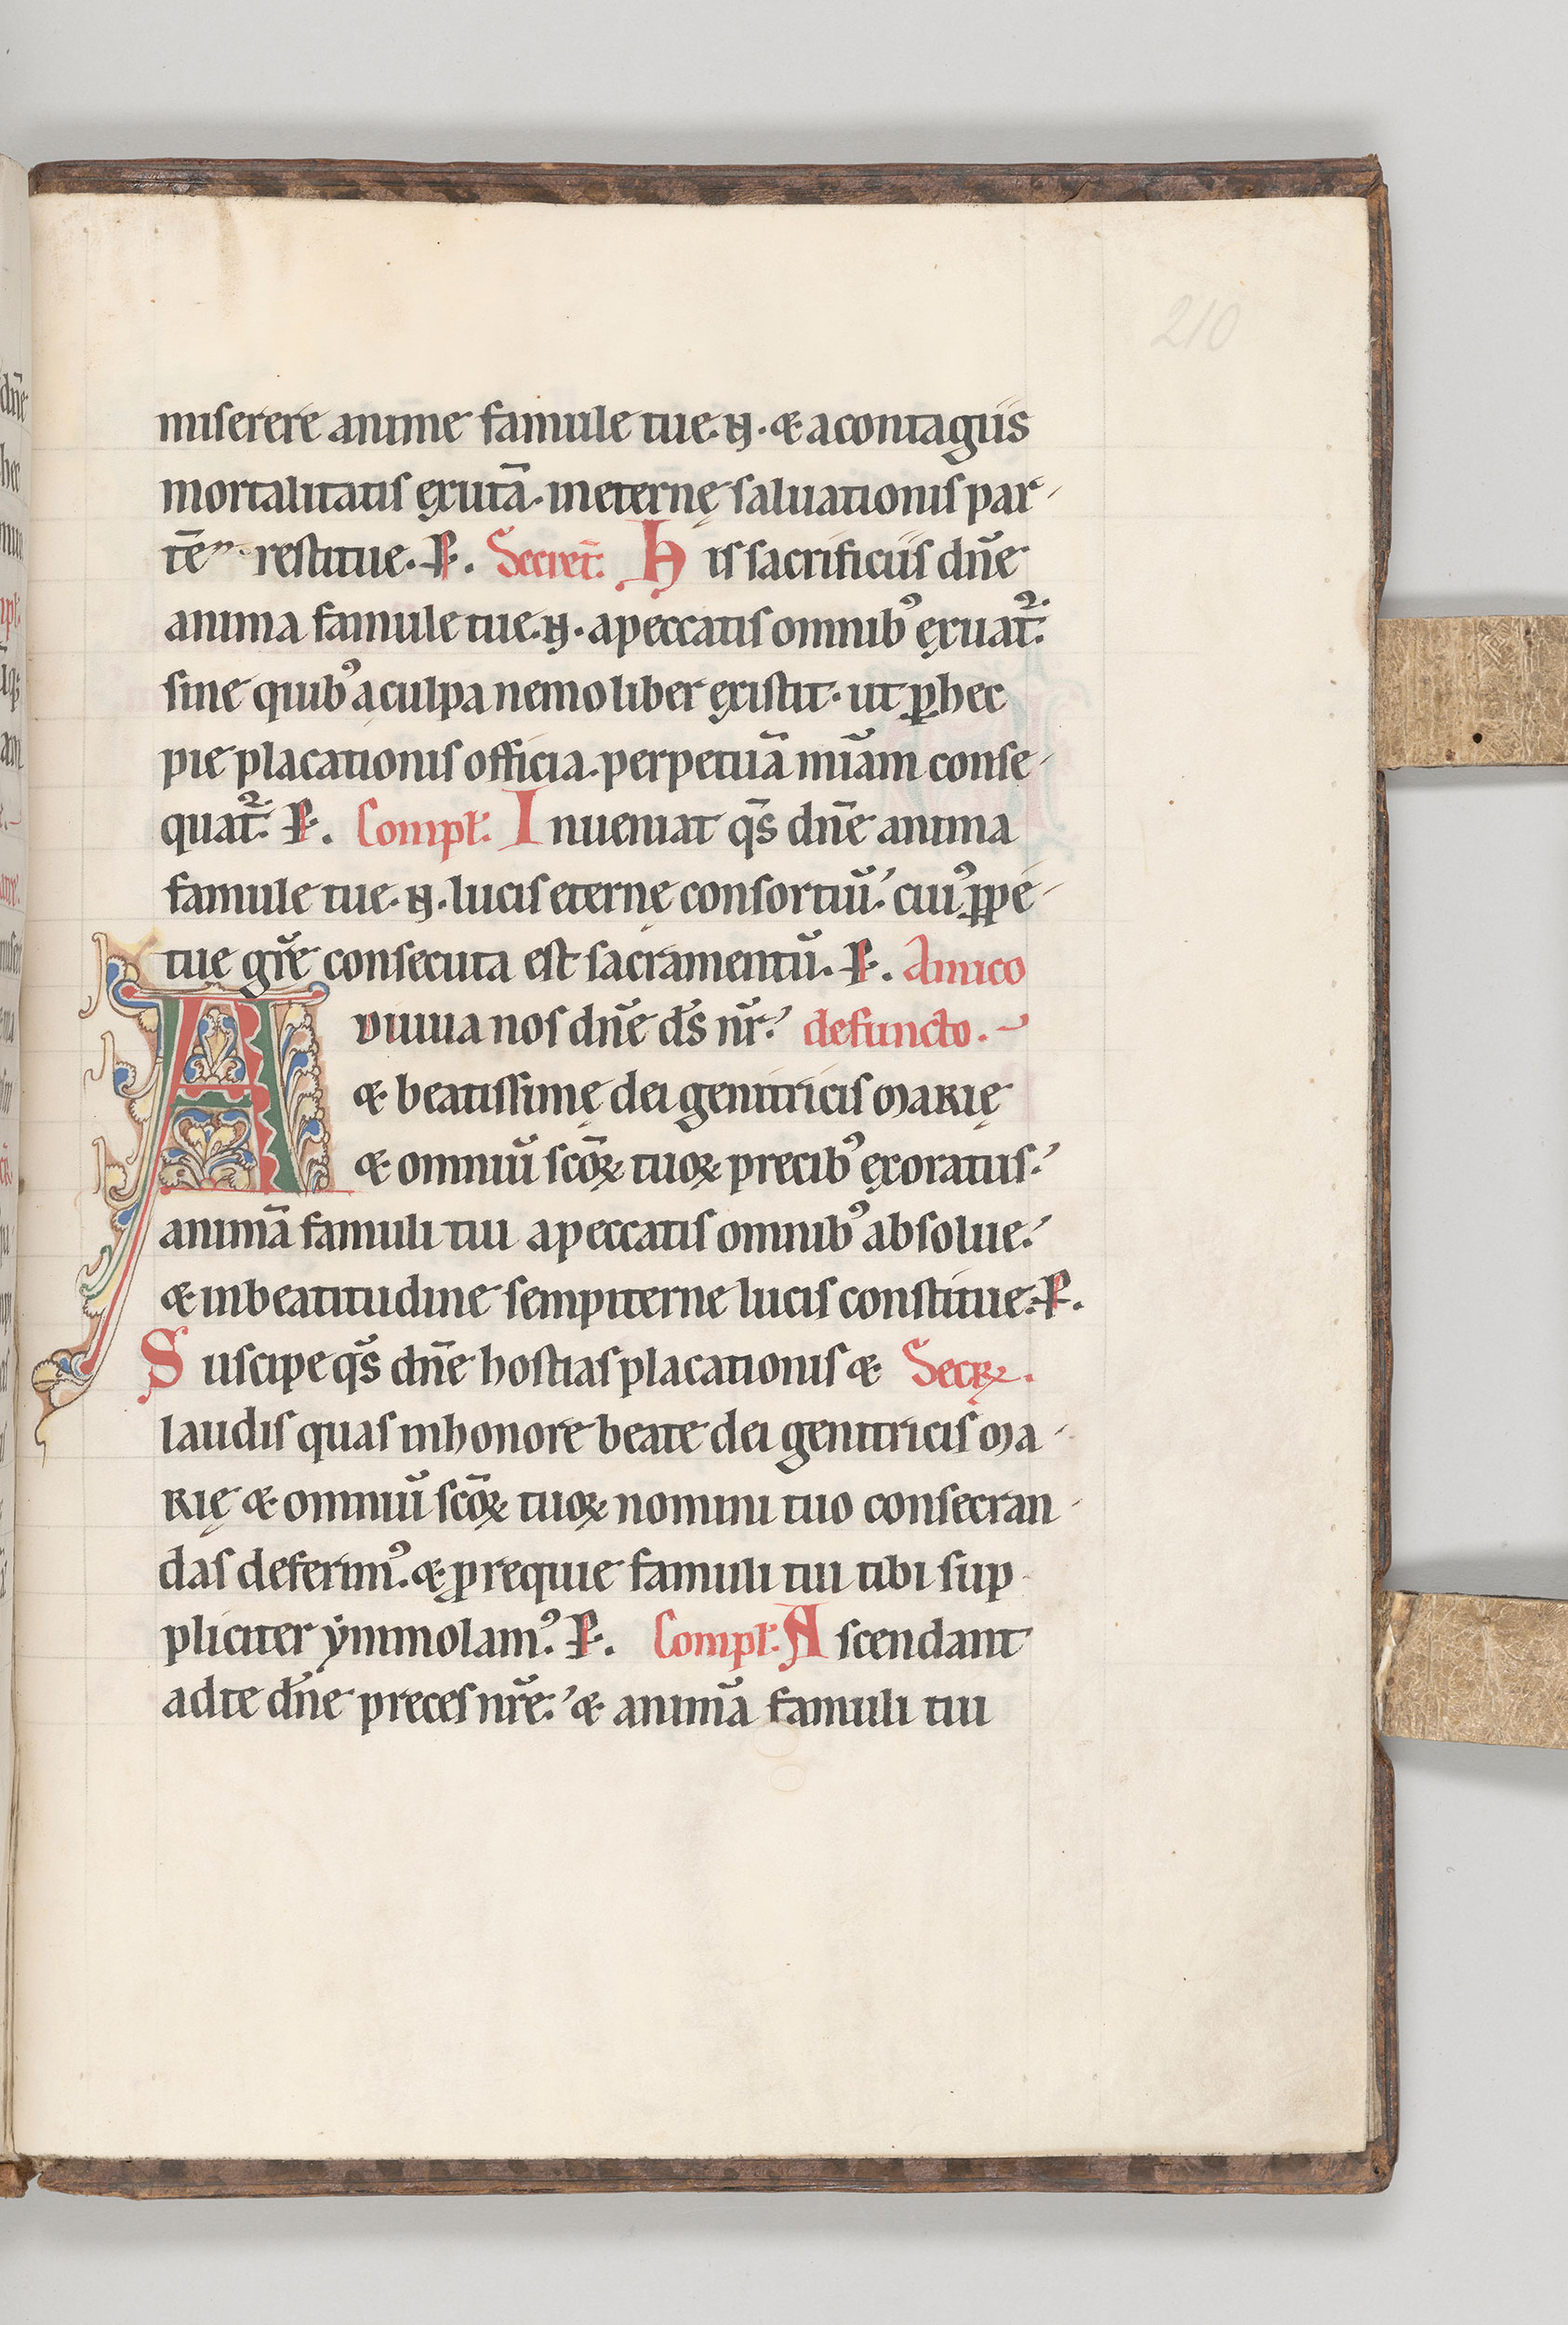 210
miserere anime famule tue. N. & a contagiis
mortalitatis exutā. in eternę saluationis par-
tē restitue. P. Secret. His sacrificiis dn̄e
anima famule tue. N. a peccatis omnibꝰ exuat᷑.
sine quibꝰ a culpa nemo liber existit. ut ꝑ hec
pie placationis officia. perpetuā mīam conse-
quat᷑. P. Compl̄. Inueniat qs̄ dn̄e anima
famule tue. N. lucis eternę consortiū. cuiꝰ ꝑpe-
tue gr̄e consecuta est sacramentū. P. Amico
Adiuua nos dn̄e ds̄ nr̄. defuncto.
& beatissimę dei genitricis MARIę
& omniū scōꝝ tuoꝝ precibꝰ exoratus.
animā famuli tui a peccatis omnibꝰ absolue.
& in beatitudine sempiterne lucis constitue. P.
Suscipe qs̄ dn̄e hostias placationis & Secꝝ.
laudis quas in honore beate dei genitricis MA-
RIę & omniū scōꝝ tuoꝝ nomini tuo consecran-
das deferimꝰ. & p requie famuli tui tibi sup-
pliciter ẏmmolamꝰ. P. Compl̄. Ascendant
ad te dn̄e preces nr̄e. & animā famuli tui